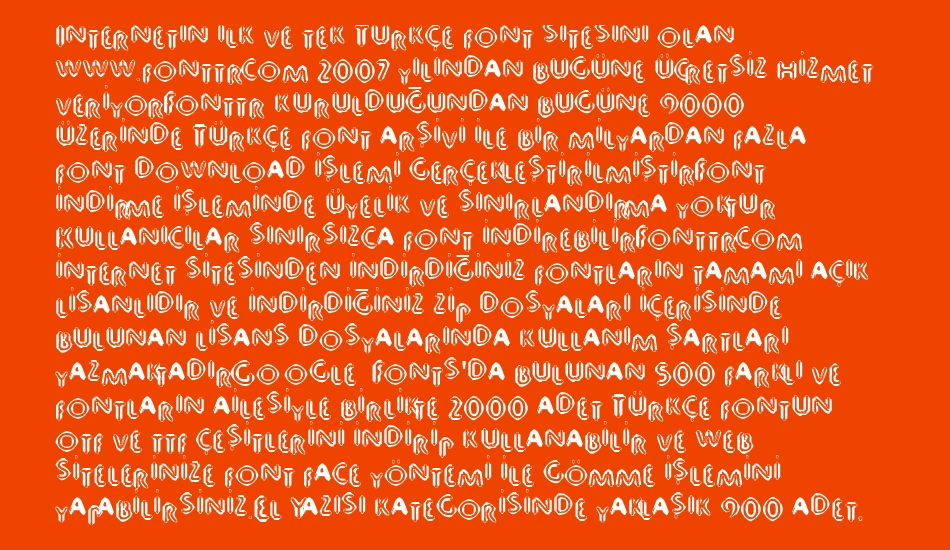 İNTERNETİN İLK VE TEK TÜRKÇE FONT SİTESİNİ OLAN
WWW.FONTTRCOM 2007 YILINDAN BUGÜNE ÜCRETSİZ HİZMET
VERİYORFONTTR KURULDUĞUNDAN BUGÜNE 9000
ÜZERİNDE TÜRKÇE FONT ARŞİVİ İLE BİR MİLYARDAN FAZLA
FONT DOWNLOAD İŞLEMİ GERÇEKLEŞTİRİLMİŞTİRFONT
İNDİRME İŞLEMİNDE ÜYELİK VE SINIRLANDIRMA YOKTUR
KULLANICILAR SINIRSIZCA FONT İNDİREBİLİRFONTTRCOM
İNTERNET SİTESİNDEN İNDİRDİĞİNİZ FONTLARIN TAMAMI AÇIK
LİSANLIDIR VE İNDİRDİĞİNİZ ZİP DOSYALARI İÇERİSİNDE
BULUNAN LİSANS DOSYALARINDA KULLANIM ŞARTLARI
YAZMAKTADIRGOOGLE FONTS'DA BULUNAN 500 FARKLI VE
FONTLARIN AİLESİYLE BİRLİKTE 2000 ADET TÜRKÇE FONTUN
OTF VE TTF ÇEŞİTLERİNİ İNDİRİP KULLANABİLİR VE WEB
SİTELERİNİZE FONT FACE YÖNTEMİ İLE GÖMME İŞLEMİNİ
YAPABİLİRSİNİZ.EL YAZISI KATEGORİSİNDE YAKLAŞIK 900 ADET.